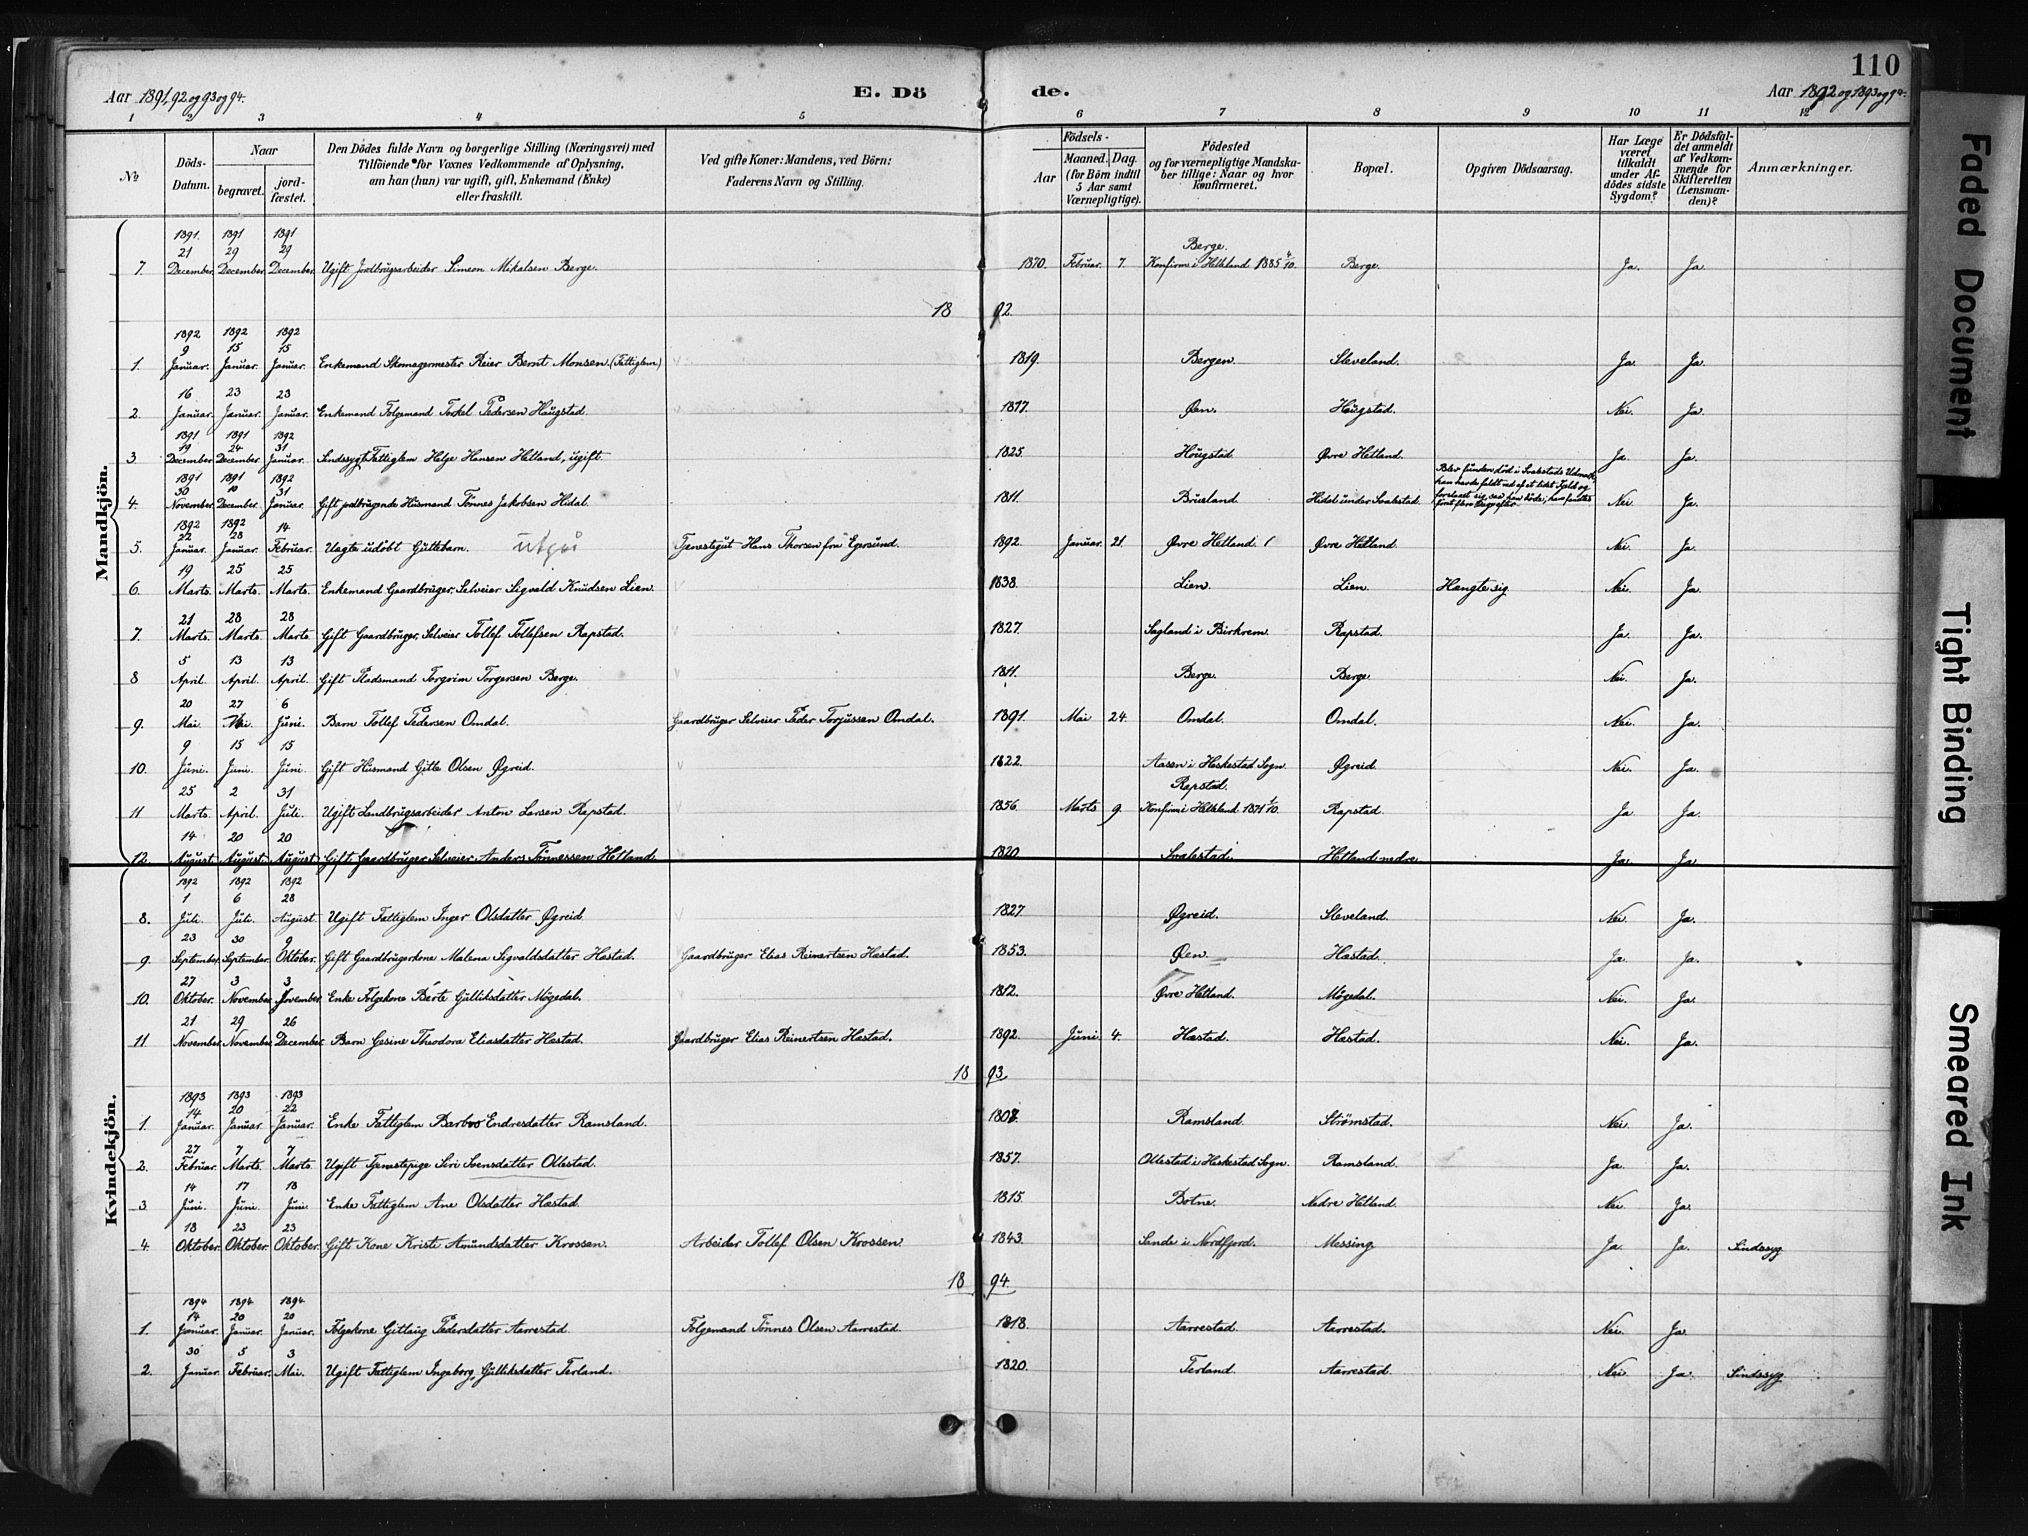 110
Aar 1891, 92 og 93 og 94.
E. Dö de.
Aar 1892 og 1893 og 94.
1 2 3 4 5 6 7 8 9 10 11 12
No
Döds-Datum.
Naar
begravet.
jord-fæstet.
Den Dödes fulde Navn og borgerlige Stilling (Næringsvei) med
Tilföiende for Voxnes Vedkommende af Oplysning,
om han (hun) var ugift, gift, Enkemand (Enke)
eller fraskilt.
Ved gifte Koner: Mandens, ved Börn:
Faderens Navn og Stilling.
Födsels-
Aar
Maaned. Dag.
(for Börn indtil
5 Aar samt
Værnepligtige).
Födested
og for værnepligtige Mandska-
ber tillige: Naar og hvor
konfirmeret.
Bopæl.
Opgiven Dödsaarsag.
Har Læge
været
tilkaldt
under Af-
dödes sidste
Sygdom?
Er Dödsfal-
det anmeldt
af Vedkom-
mende for
Skifteretten
(Lensman-
den)?
Anmærkninger.
Mandkjön.
1891. 1891 1891
21 29 29
7. December. December. December. Ugift Jordbrugsarbeider Simeon Mikalsen Berge. 1870. Februar. 7. Berge. Konfirm. i Helleland 1885 4/10. Berge. Ja. Ja.
18 92.
1892 1892 1892
9 15 15
1. Januar. Januar. Januar. Enkemand Skomagermester Reier Bernt Monsen. (Fattiglem) 1819. Bergen. Sleveland. Ja. Ja.
16 23 23
2. Januar. Januar. Januar. Enkemand Folgemand Torkel Pedersen Haugstad. 1817. Øen. Haugstad. Nei. Ja.
1891 1891 1892
19 24 31
3 December December Januar. Sindssyg Fattiglem Helje Hansen Hetland, ugift. 1825. Haugstad Øvre Hetland. Ja. Ja.
1891 1891 1892
30 10 31
4. November. December Januar. Gift jordbrugende Husmand Tönnes Jakobsen Hidal. 1811. Bruland Hidal under Svalestad. Blev funden död i Svalestads Udmark, han havde faldt ved et lidet Fjeld og Nei. Ja.
1892 1892 14
22 28
5. Januar. Januar. Februar. Uægte udöbt Guttebarn. utgår Tjenestegut Hans Thorsen fra Egersund. 1892. Januar. 21. Øvre Hetland. Øvre Hetland. Nei. Ja.
19 25 25
6. Marts. Marts. Marts. Enkemand Gaardbruger, Selveier Sigvald Knudsen Lien. 1838. Lien. Lien. Hængte sig. Nei. Ja.
21 28 28
7. Marts. Marts. Marts. Gift Gaardbruger, Selveier Tollef Tollefsen Rapstad. 1827. Sagland i Birkrem. Rapstad. Ja. Ja.
5 13 13
8 April. April. April. Gift Pladsmand Torgrim Torgersen Berge. 1811. Berge. Berge. Nei. Ja.
20 27 6
9. Mai. Mai. Juni. Barn Tollef Pedersen Omdal. Gaardbruger Selveier Peder Torjussen Omdal. 1891. Mai 24. Omdal. Omdal. Nei. Ja.
9 15 15
10. Juni. Juni. Juni. Gift Husmand Gitle Olsen Øgreid. 1822. Aasen i Heskestad Sogn. Øgreid. Nei. Ja.
25 2 31
11 Marts. April. Juli. Ugift Landbrugsarbeider Anton Larsen Rapstad. 1856. Marts 9. Rapstad. Konfirm. i Helleland 1871 1/10. Rapstad. Ja. Ja.
14 20 20
12. August. August. August. Gift Gaardbruger, Selveier Anders Tönnessen Hetland. 1820. Svalestad. Hetland nedre. Ja. Ja.
Kvindekjön.
1892 1892 1892
1 6 28
8. Juli. Juli. August. Ugift Fattiglem Inger Olsdatter Øgreid 1827. Øgreid. Sleveland. Nei. Ja.
23 30 9
9. September. September. Oktober. Gift Gaardbrugerkone Malena Sigvaldsdatter Hæstad. Gaardbruger Elias Reinertsen Hæstad. 1853. Øen. Hæstad. Ja. Ja.
27 3 3
10. Oktober. November. November. Enke Folgekone Berte Gulliksdatter Mögedal. 1812. Øvre Hetland. Mögedal. Nei. Ja.
21 29 26
11 November. November. December. Barn Gesine Theodora Eliasdatter Hæstad. Gaardbruger Elias Reinertsen Hæstad. 1892. Juni 4. Hæstad. Hæstad. Nei. Ja.
18 93
1893 1893 1893
14 20 22
1. Januar. Januar. Januar. Enke Fattiglem Barbro Endresdatter Ramsland. Ramsland. Strømstad. Nei. Ja.
27 7 7
2. Februar. Marts. Marts. Ugift Tjenestepige Siri Svensdatter Ollestad. 1857. Ollestad i Heskestad Sogn. Ramsland. Ja. Ja.
14 17 18
3 Juni. Juni. Juni. Enke Fattiglem Ane Olsdatter Hæstad. 1815. Botne. Nedre Hetland. Nei. Ja.
18 23 23
4. Oktober. Oktober. Oktober. Gift Kone Kristi Amundsdatter Krossen. Arbeider Tollef Olsen Krossen 1843. Sande i Nordfjord. Messing. Ja. Ja. Sindssyg
18 94
1894 1894 1894
14 20 20
1. Januar. Januar. Januar. Folgekone Gitlaug Pedersdatter Aarrestad. Folgemand Tönnes Olsen Aarrestad. 1818. Aarrestad. Aarrestad. Nei. Ja.
30 5 3
2. Januar. Februar. Mai. Ugift Fattiglem Ingeborg Gulliksdatter Terland. 1820. Terland. Aarrestad. Nei. Ja. Sindssyg.
Faded Document
Tight Binding
Smeared Ink